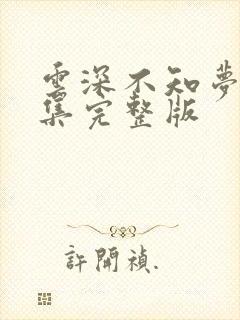 雲深不知夢
集完整版
許開禎.